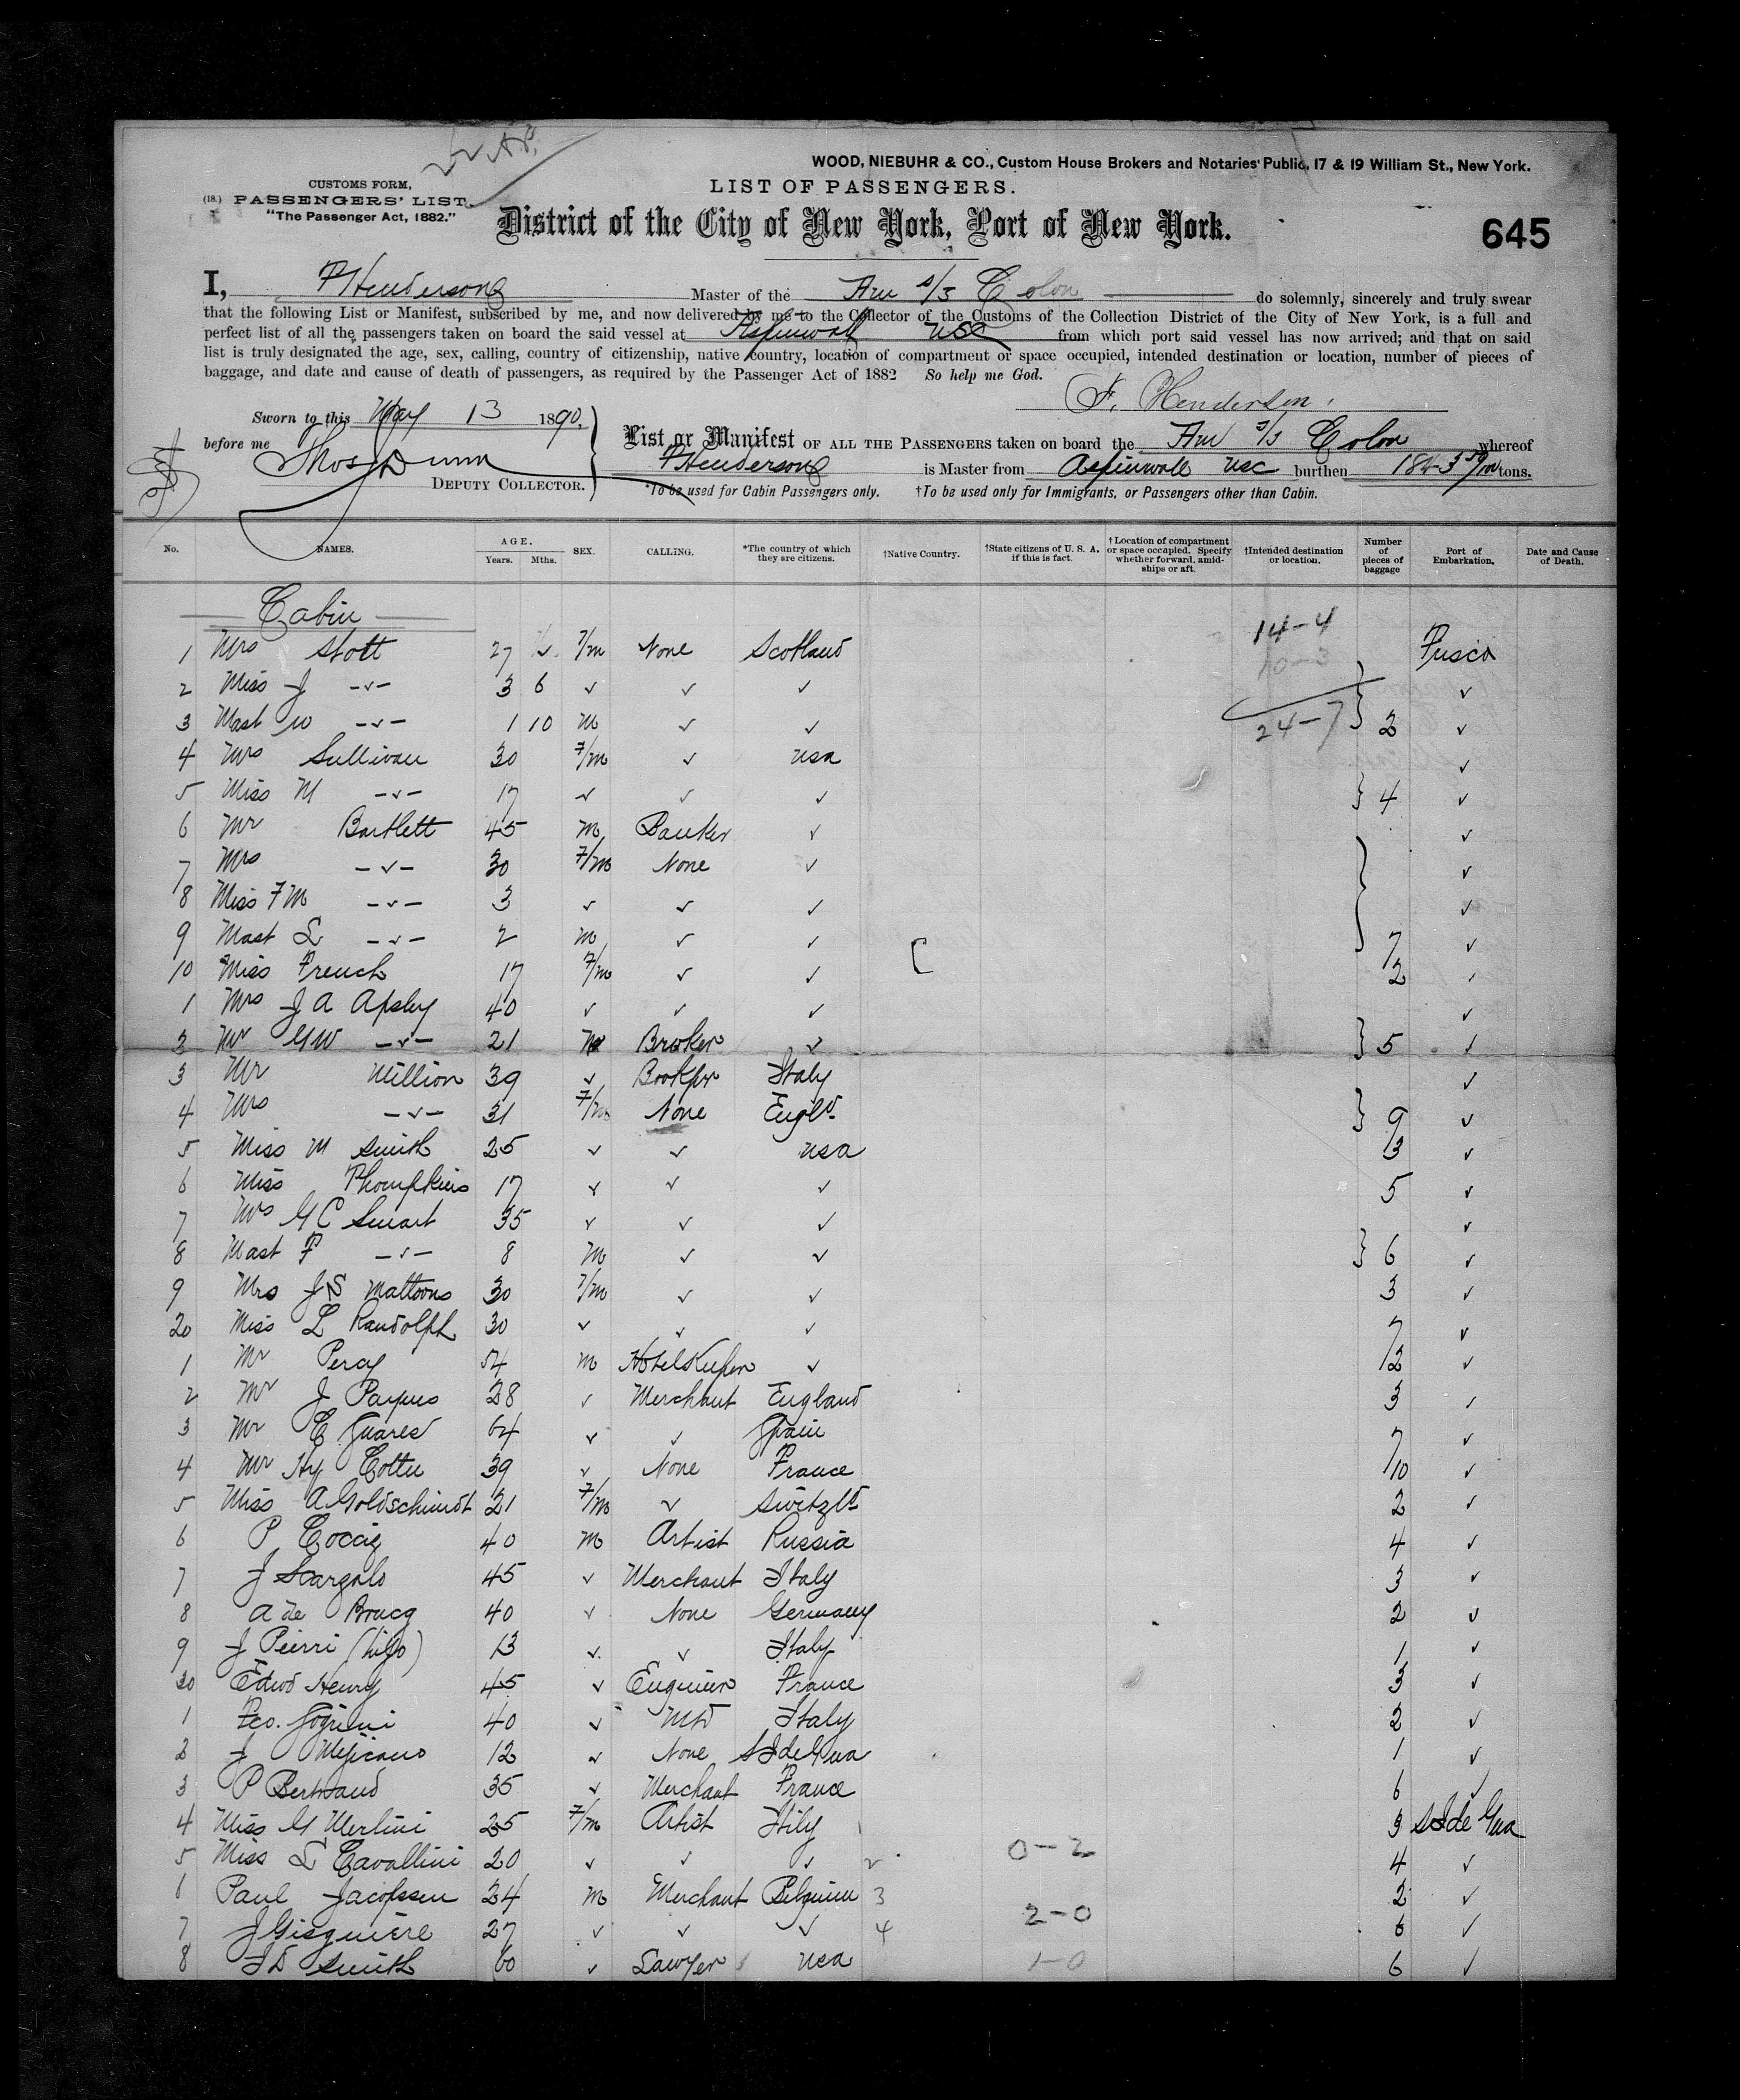 WOOD, NIEBUHR & CO., Custom House Brokers and Notaries Public, 17 & 19 William St., New York.
CUSTOMS FORM,
LIST OF PASSENGERS.
(18.) PASSENGERS' LIST.
"The Passenger Act, 1882."
District of the City of New York, Port of New York.
645
I, F Henderson Master of the Am s/s Colon do solemnly, sincerely and truly swear
that the following List or Manifest, subscribed by me, and now delivered by me to the Collector of the Customs of the Collection District of the City of New York, is a full and
perfect list of all the passengers taken on board the said vessel at Aspinwall USC from which port said vessel has now arrived; and that on said
list is truly designated the age, sex, calling, country of citizenship, native country, location of compartment or space occupied, intended destination or location, number of pieces of
baggage, and date and cause of death of passengers, as required by the Passenger Act of 1882 So help me God.
F. Henderson.
Sworn to this May 13 1890.
before me Thos Dunn
DEPUTY COLLECTOR.
List or Manifest OF ALL THE PASSENGERS taken on board the Am s/s Colon whereof
F Henderson is Master from Aspinwall USC burthen tons.
*To be used for Cabin Passengers only. †To be used only for Immigrants, or Passengers other than Cabin.
No. NAMES. AGE. Years. Mths. SEX. CALLING. *The country of which they are citizens. †Native Country. †State citizens of U. S. A. if this is fact. †Location of compartment or space occupied. Specify whether forward, amidships or aft. †Intended destination or location. Number of pieces of baggage Port of Embarkation. Date and Cause of Death.
Cabin
14-4
1 Mrs Stott 27 ✓ F/m None Scotland Frisco
10-3
2 Miss J -✓- 3 6 ✓ ✓ ✓ ✓
3 Mast W -✓- 1 10 m ✓ ✓ 24-7 } 2 ✓
4 Mrs Sullivan 30 F/m ✓ USA ✓
5 Miss M -✓- 17 ✓ ✓ ✓ } 4 ✓
6 Mr Bartlett 45 m Banker ✓ ✓
7 Mrs -✓- 30 F/m None ✓ ✓
8 Miss F M -✓- 3 ✓ ✓ ✓ ✓
9 Mast L -✓- 2 m ✓ ✓ } 7 ✓
10 Miss French 17 F/m ✓ ✓ [ 2 ✓
1 Mrs J A Apsley 40 ✓ ✓ ✓ ✓
2 Mr G W -✓- 21 m Broker ✓ } 5 ✓
3 Mr Million 39 ✓ Bookpr Italy ✓
4 Mrs -✓- 31 F/m None Engld } 9 ✓
5 Miss M Smith 25 ✓ ✓ USA 3 ✓
6 Miss Thompkins 17 ✓ ✓ ✓ 5 ✓
7 Mrs G C Smart 35 ✓ ✓ ✓ ✓
8 Mast F -✓- 8 m ✓ ✓ } 6 ✓
9 Mrs J S Mattoons 30 F/m ✓ ✓ 3 ✓
20 Miss L Randolph 30 ✓ ✓ ✓ 7 ✓
1 Mr Percy 54 m Hotelkeeper ✓ 2 ✓
2 Mr J Paynes 28 ✓ Merchant England 3 ✓
3 Mr E Juares 64 ✓ ✓ Spain 7 ✓
4 Mr Hy Cottu 39 ✓ None France 10 ✓
5 Miss A Goldschmidt 21 F/m ✓ Switzld 2 ✓
6 P 40 m Artist Russia 4 ✓
7 J Scargolo 45 ✓ Merchant Italy 3 ✓
8 A de Brucq 40 ✓ None Germany 2 ✓
9 J Pierri (hijo) 13 ✓ ✓ Italy 1 ✓
30 Edwd Henry 45 ✓ Engineer France 3 ✓
1 Fco. 40 ✓ MD Italy 2 ✓
2 J Mejicano 12 ✓ None SJdeGua 1 ✓
3 P Bertrand 35 ✓ Merchant France 6 ✓
4 Miss G Merlini 25 F/m Artist Itily 1 3 SJde Gua
5 Miss L Cavallini 20 ✓ ✓ ✓ 2 0-2 4 ✓
6 Paul Jacobssen 24 m Merchant Belguim 3 2 ✓
7 J Gisquiere 27 ✓ ✓ ✓ 4 2-0 6 ✓
8 J D Smith 60 ✓ Lawyer USA 1-0 6 ✓